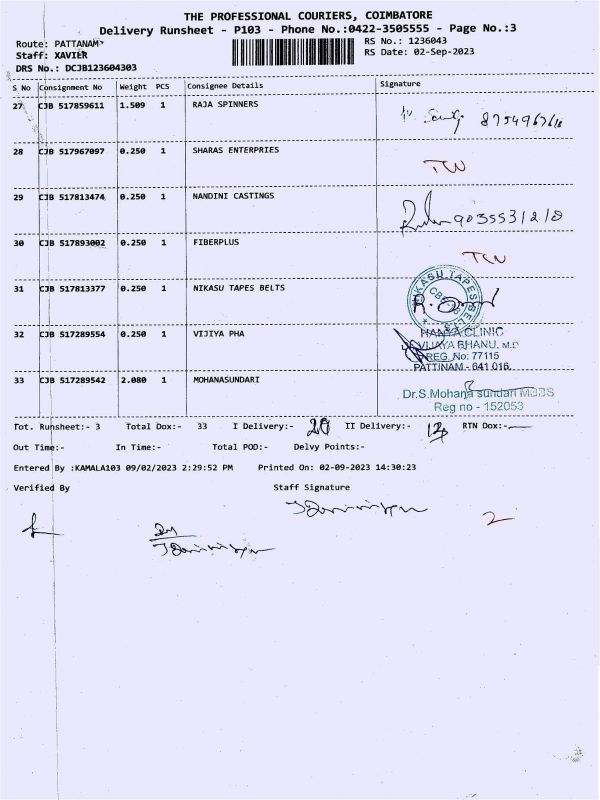 THE PROFESSIONAL COURIERS, COIMBATORE
Delivery Runsheet - P103 - Phone No.:0422-3505555 - Page No.:3
Route: PATTANAM
RS No.: 1236043
Staff: XAVIER
RS Date: 02-Sep-2023
DRS No.: DCJB123604303
S No Consignment No Weight PCS Consignee Details Signature
27 CJB 517859611 1.509 1 RAJA SPINNERS
28 CJB 517967097 0.250 1 SHARAS ENTERPRIES
29 CJB 517813474 0.250 1 NANDINI CASTINGS 9035531210
30 CJB 517893002 0.250 1 FIBERPLUS
31 CJB 517813377 0.250 1 NIKASU TAPES BELTS
32 CJB 517289554 0.250 1 VIJIYA PHA HANYA CLINIC
VIJAYA BHANU. M.D
REG. No: 77115
PATTINAM - 641 016.
33 CJB 517289542 2.080 1 MOHANASUNDARI
Dr.S.Mohana sundari MBBS
Reg no - 152053
Tot. Runsheet:- 3 Total Dox:- 33 I Delivery:- 20 II Delivery:- 13 RTN Dox:-
Out Time:- In Time:- Total POD:- Delvy Points:-
Entered By :KAMALA103 09/02/2023 2:29:52 PM Printed On: 02-09-2023 14:30:23
Verified By Staff Signature
2